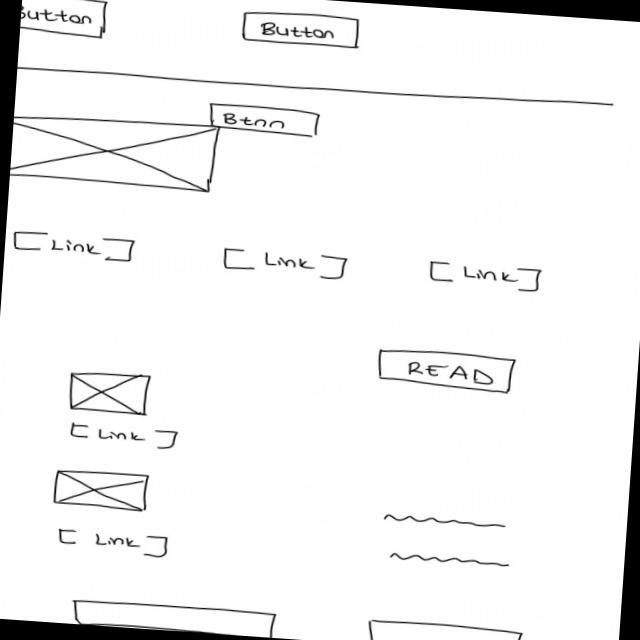 Button Button
Btnn
[Link] [Link] [Link]
READ
[Link]
[Link]